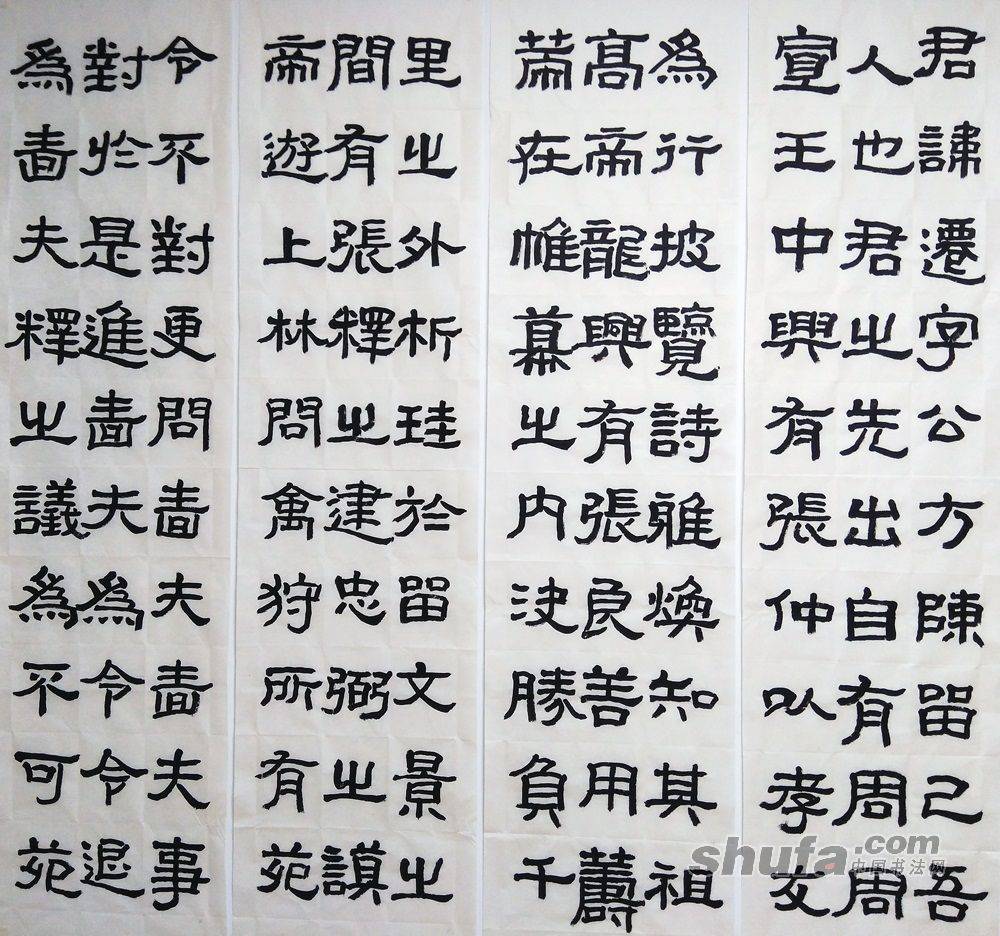 君諱遷字公方陳留己吾
人也君之先出自有周周
宣王中興有張仲以孝友
為行披覽詩雅煥知其祖
高帝龍興有張良善用籌
策在帷幕之內決勝負千
里之外析珪於留文景之
間有張釋之建忠弼之謨
帝遊上林問禽狩所有苑
令不對更問嗇夫嗇夫事
對於是進嗇夫為令令退
為嗇夫釋之議為不可苑
shufa.com
中国书法网